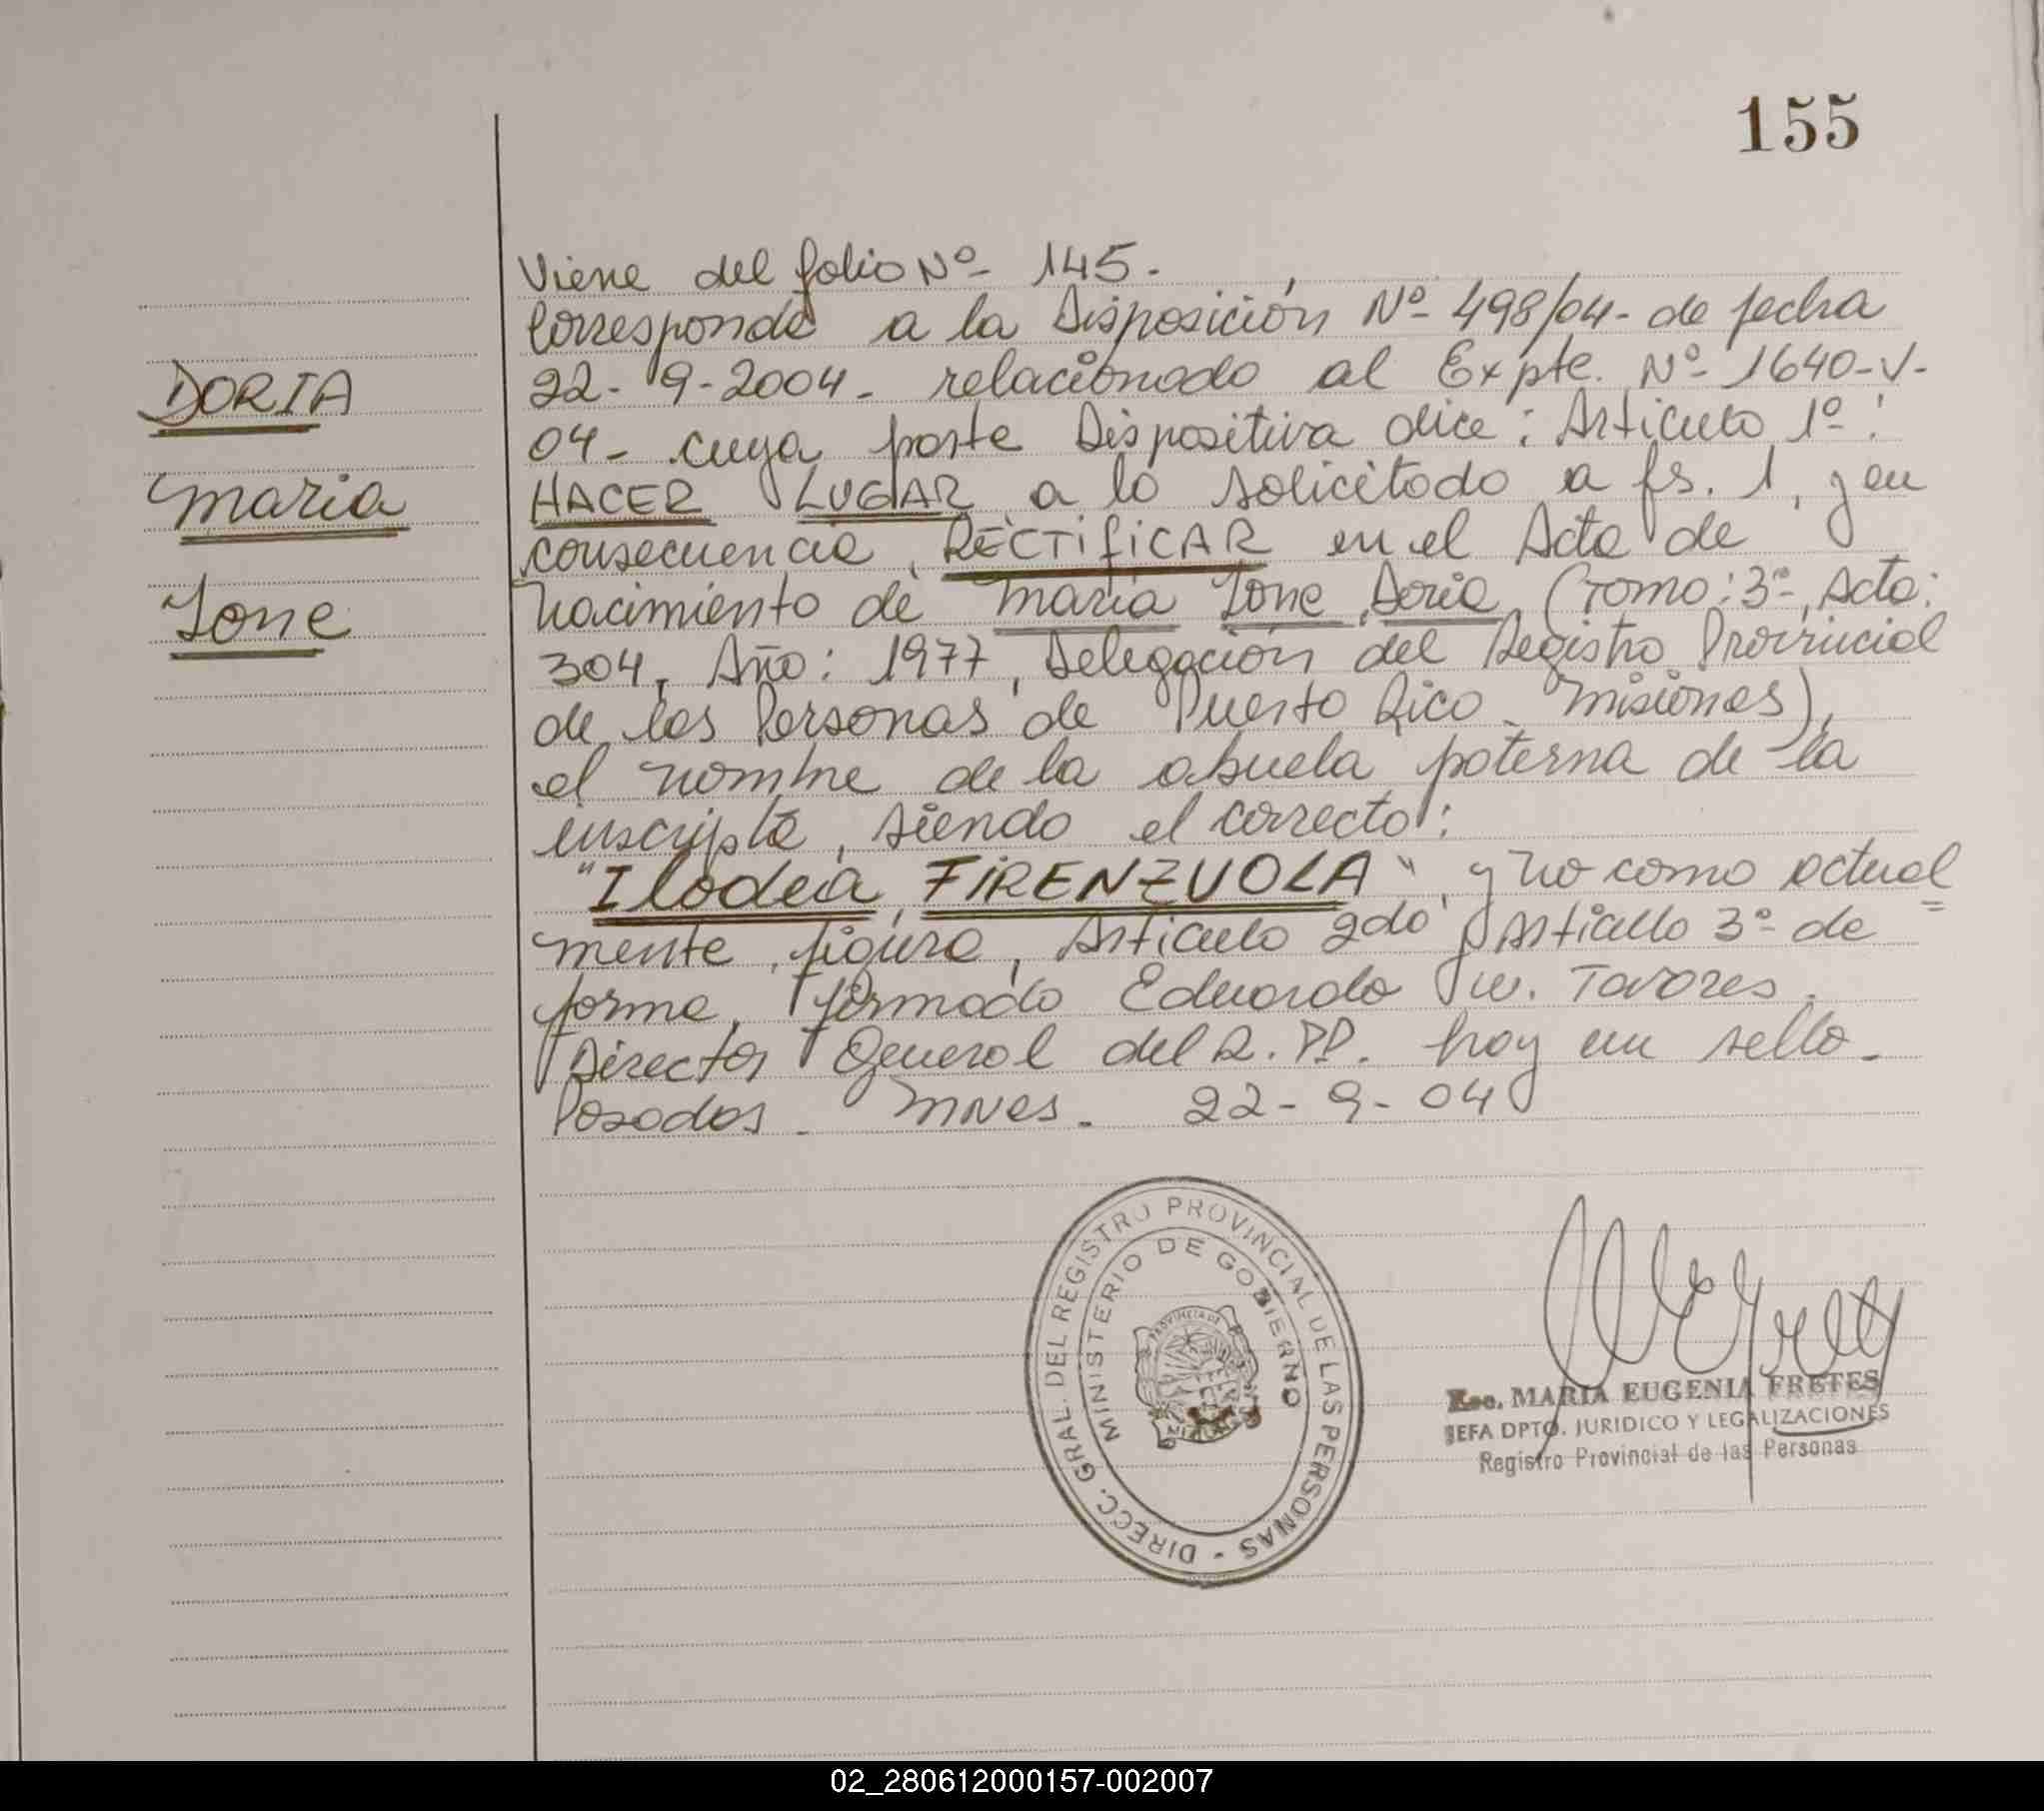 155
Viene del folio Nº 145.
Corresponde a la Disposición Nº 498/04- de fecha
22-9-2004- relacionado al Expte. Nº 1640-V-
04- cuya parte Dispositiva dice: Artículo 1º:
HACER LUGAR a lo solicitado a fs. 1, y en
consecuencia, RECTIFICAR en el Acta de
nacimiento de María Ione Doria (Tomo: 3º, Acta:
304, Año: 1977, Delegación del Registro Provincial
de las Personas de Puerto Rico - Misiones),
el nombre de la abuela paterna de la
inscripta, siendo el correcto:
"Ilodea FIRENZUOLA" y no como actual=
mente figura, Artículo 2do y Artículo 3º de
forma, firmado Eduardo W. Tavares.
Director General del R.PP. hay un sello-
Posadas - Mnes. 22-9-04
DORIA
María
Ione
DIRECC. GRAL. DEL REGISTRO PROVINCIAL DE LAS PERSONAS -
MINISTERIO DE GOBIERNO
PROVINCIA DE
MISIONES
Esc. MARIA EUGENIA FRETES
JEFA DPTO. JURIDICO Y LEGALIZACIONES
Registro Provincial de las Personas
02_280612000157-002007